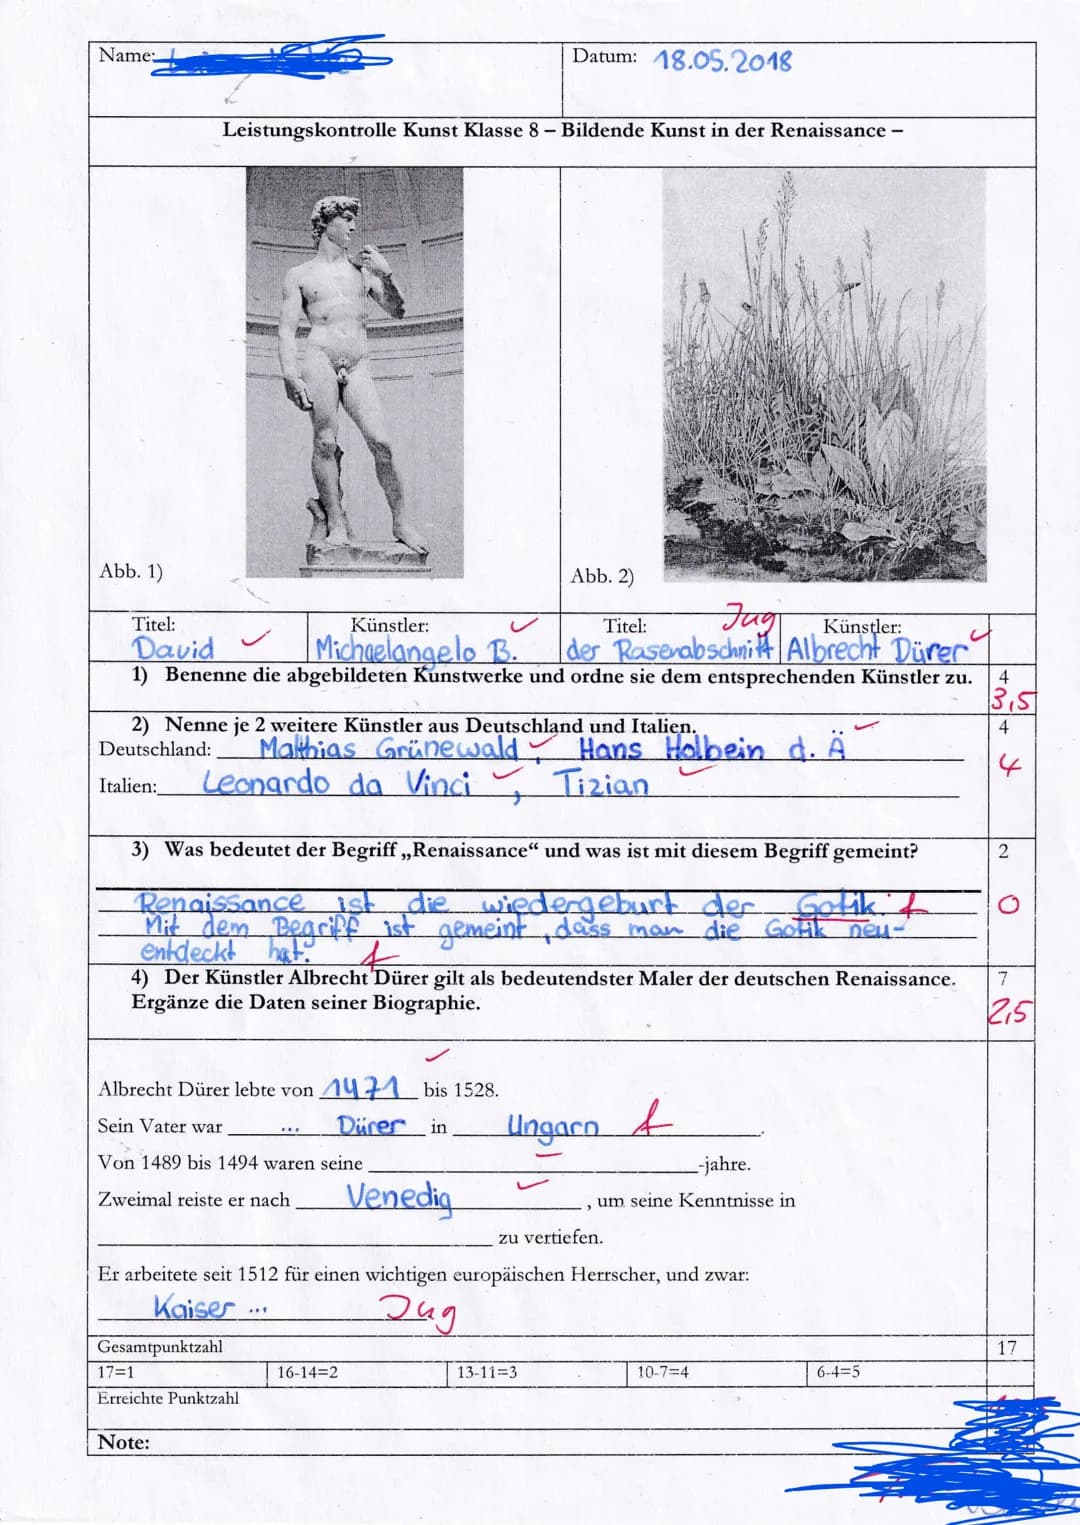 Name:
Datum: 18.05.2018
Leistungskontrolle Kunst Klasse 8 – Bildende Kunst in der Renaissance –
Abb. 1)
Abb. 2)
Titel: Künstler: Titel: Künstler:
David Michaelangelo B. der Rasenabschnitt Albrecht Dürer
1) Benenne die abgebildeten Kunstwerke und ordne sie dem entsprechenden Künstler zu. 4
3,5
2) Nenne je 2 weitere Künstler aus Deutschland und Italien. 4
Deutschland: Matthias Grünewald, Hans Holbein d. Ä
4
Italien: Leonardo da Vinci, Tizian
3) Was bedeutet der Begriff „Renaissance“ und was ist mit diesem Begriff gemeint? 2
Renaissance ist die wiedergeburt der Gotik. f 0
Mit dem Begriff ist gemeint, dass man die Gotik neu-
entdeckt hat. f
4) Der Künstler Albrecht Dürer gilt als bedeutendster Maler der deutschen Renaissance. 7
Ergänze die Daten seiner Biographie. 2,5
Albrecht Dürer lebte von 1471 bis 1528.
Sein Vater war ... Dürer in Ungarn f.
Von 1489 bis 1494 waren seine -jahre.
Zweimal reiste er nach Venedig, um seine Kenntnisse in
zu vertiefen.
Er arbeitete seit 1512 für einen wichtigen europäischen Herrscher, und zwar:
Kaiser ...
Gesamtpunktzahl 17
17=1 16-14=2 13-11=3 10-7=4 6-4=5
Erreichte Punktzahl
Note: